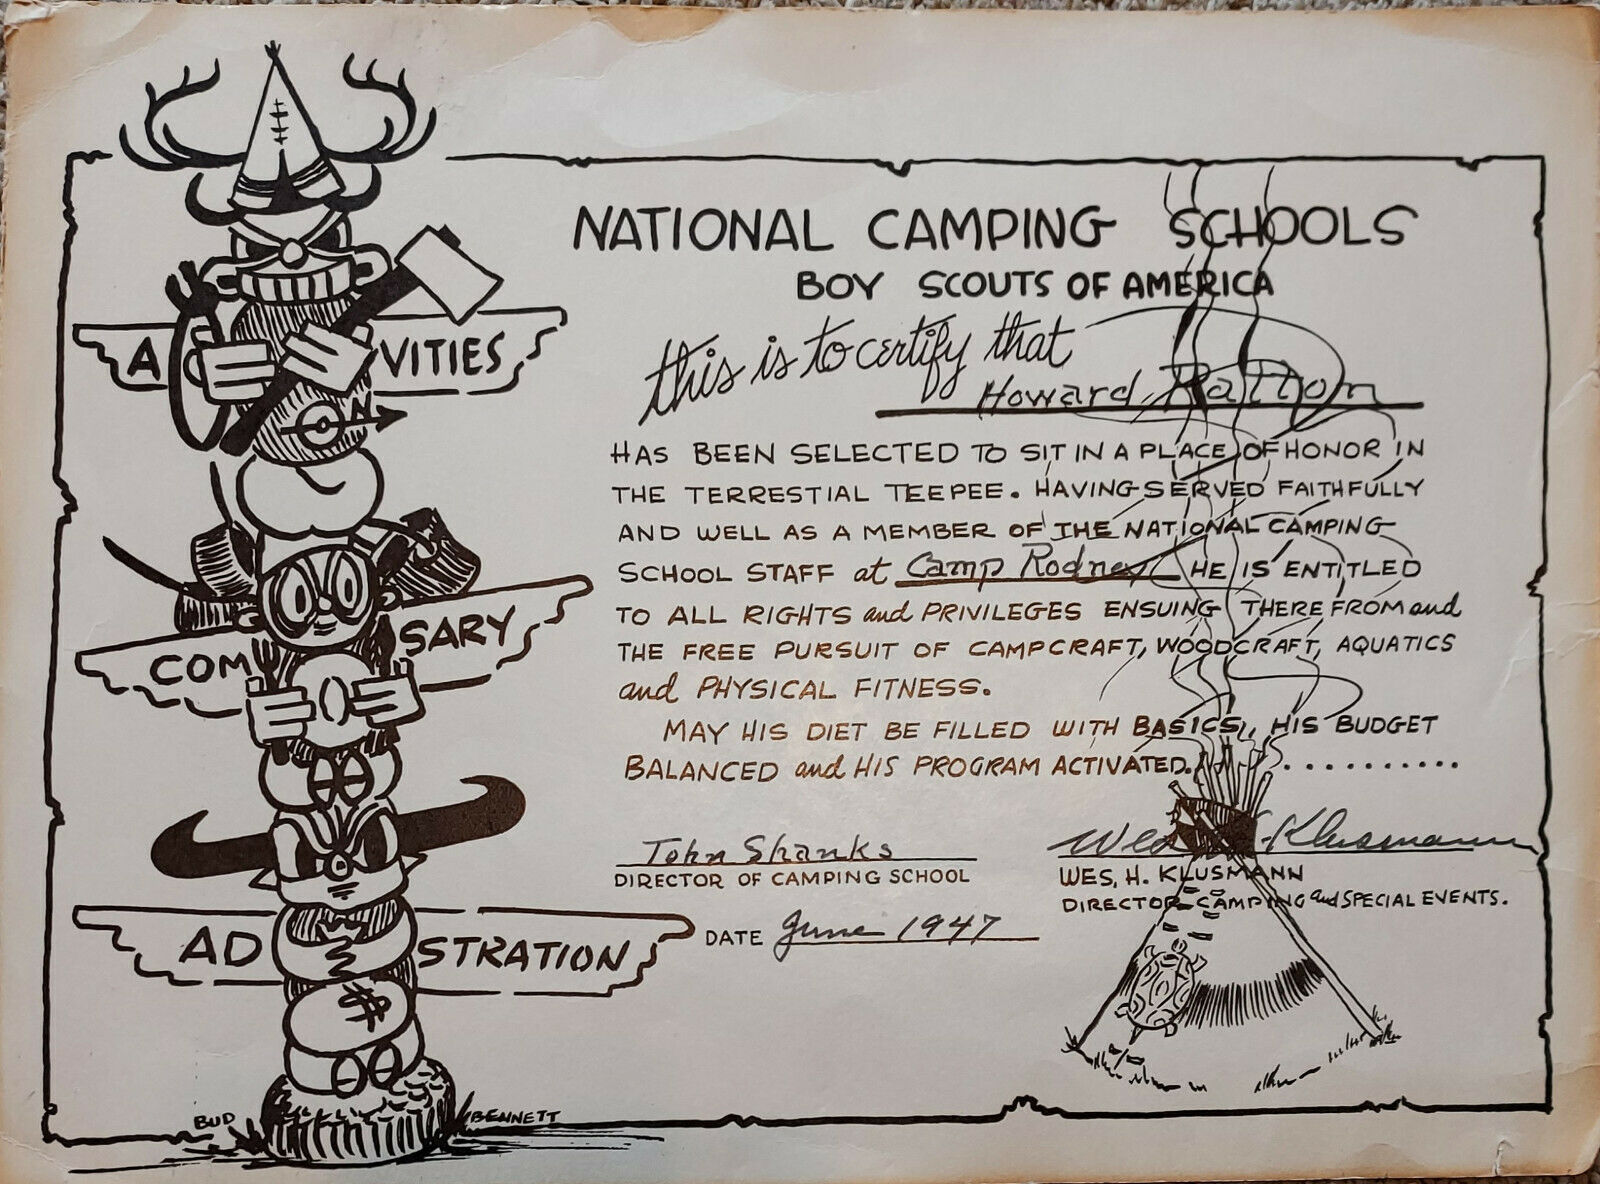 NATIONAL CAMPING SCHOOLS
BOY SCOUTS OF AMERICA
this is to certify that
Howard
HAS BEEN SELECTED TO SIT IN A PLACE OF HONOR IN
THE TERRESTIAL TEEPEE. HAVING SERVED FAITHFULLY
AND WELL AS A MEMBER OF THE NATIONAL CAMPING
SCHOOL STAFF at Camp Rodney HE IS ENTITLED
TO ALL RIGHTS and PRIVILEGES ENSUING THERE FROM and
THE FREE PURSUIT OF CAMPCRAFT, WOODCRAFT, AQUATICS
and PHYSICAL FITNESS.
MAY HIS DIET BE FILLED WITH BASICS, HIS BUDGET
BALANCED and HIS PROGRAM ACTIVATED. ..........
John Shanks
DIRECTOR OF CAMPING SCHOOL
Wes H. Klusmann
WES, H. KLUSMANN
DIRECTOR CAMPING and SPECIAL EVENTS.
DATE June 1947
A VITIES
N
COM SARY
AD STRATION
$
BUD BENNETT